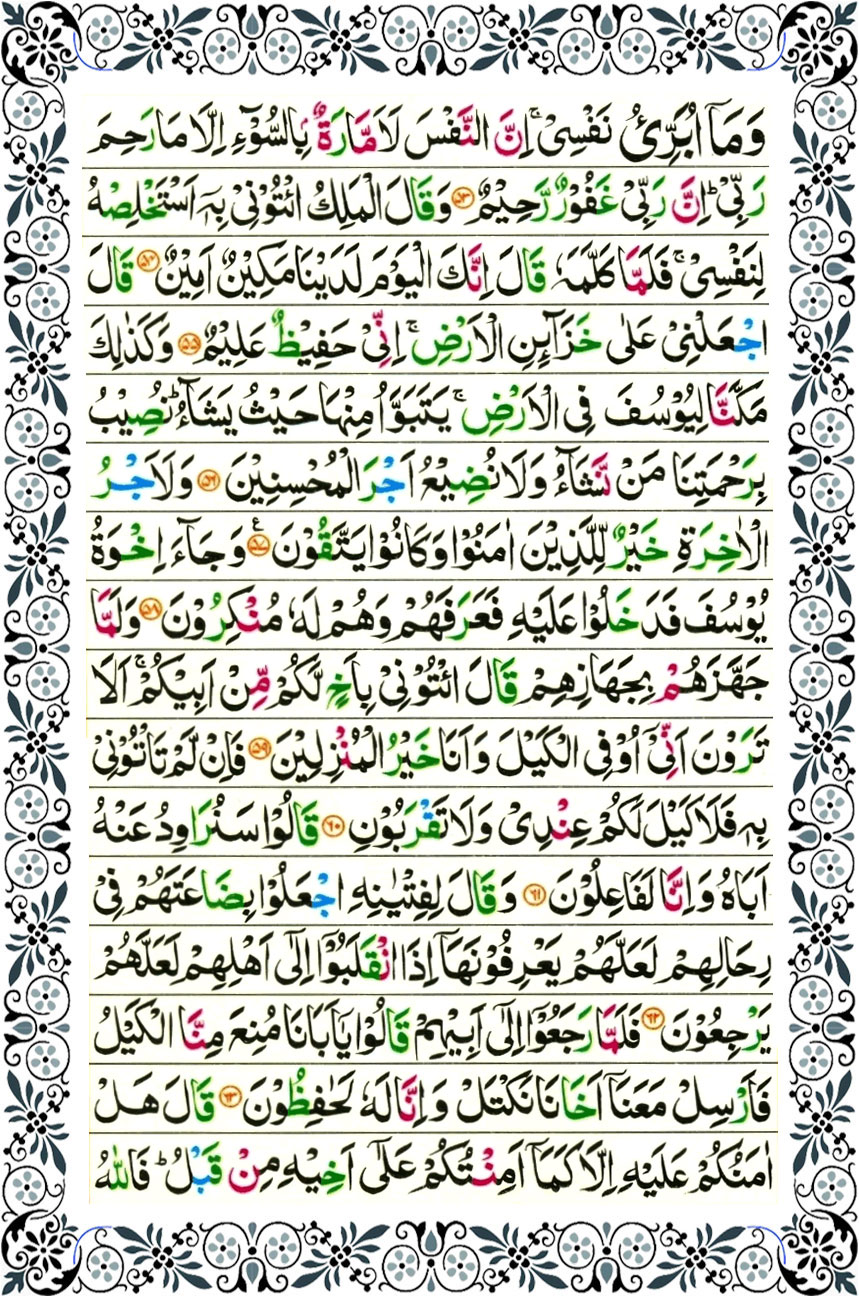 وَمَاۤ اُبَرِّئُ نَفْسِیْ ۚ اِنَّ النَّفْسَ لَاَمَّارَةٌۢ بِالسُّوْٓءِ اِلَّا مَا رَحِمَ
رَبِّیْ ؕ اِنَّ رَبِّیْ غَفُوْرٌ رَّحِیْمٌ ۵۳ وَقَالَ الْمَلِكُ ائْتُوْنِیْ بِهٖۤ اَسْتَخْلِصْهُ
لِنَفْسِیْ ۚ فَلَمَّا كَلَّمَهٗ قَالَ اِنَّكَ الْیَوْمَ لَدَیْنَا مَكِیْنٌ اَمِیْنٌ ۵۴ قَالَ
اجْعَلْنِیْ عَلٰی خَزَآئِنِ الْاَرْضِ ۚ اِنِّیْ حَفِیْظٌ عَلِیْمٌ ۵۵ وَكَذٰلِكَ
مَكَّنَّا لِیُوْسُفَ فِی الْاَرْضِ ۚ یَتَبَوَّاُ مِنْهَا حَیْثُ یَشَآءُ ؕ نُصِیْبُ
بِرَحْمَتِنَا مَنْ نَّشَآءُ وَلَا نُضِیْعُ اَجْرَ الْمُحْسِنِیْنَ ۵۶ وَلَاَجْرُ
الْاٰخِرَةِ خَیْرٌ لِّلَّذِیْنَ اٰمَنُوْا وَكَانُوْا یَتَّقُوْنَ ۵۷ ع وَجَآءَ اِخْوَةُ
یُوْسُفَ فَدَخَلُوْا عَلَیْهِ فَعَرَفَهُمْ وَهُمْ لَهٗ مُنْكِرُوْنَ ۵۸ وَلَمَّا
جَهَّزَهُمْ بِجَهَازِهِمْ قَالَ ائْتُوْنِیْ بِاَخٍ لَّكُمْ مِّنْ اَبِیْكُمْ ۚ اَلَا
تَرَوْنَ اَنِّیْۤ اُوْفِی الْكَیْلَ وَاَنَا خَیْرُ الْمُنْزِلِیْنَ ۵۹ فَاِنْ لَّمْ تَاْتُوْنِیْ
بِهٖ فَلَا كَیْلَ لَكُمْ عِنْدِیْ وَلَا تَقْرَبُوْنِ ۶۰ قَالُوْا سَنُرَاوِدُ عَنْهُ
اَبَاهُ وَاِنَّا لَفَاعِلُوْنَ ۶۱ وَقَالَ لِفِتْیٰنِهِ اجْعَلُوْا بِضَاعَتَهُمْ فِیْ
رِحَالِهِمْ لَعَلَّهُمْ یَعْرِفُوْنَهَاۤ اِذَا انْقَلَبُوْۤا اِلٰۤی اَهْلِهِمْ لَعَلَّهُمْ
یَرْجِعُوْنَ ۶۲ فَلَمَّا رَجَعُوْۤا اِلٰۤی اَبِیْهِمْ قَالُوْا یٰۤاَبَانَا مُنِعَ مِنَّا الْكَیْلُ
فَاَرْسِلْ مَعَنَاۤ اَخَانَا نَكْتَلْ وَاِنَّا لَهٗ لَحٰفِظُوْنَ ۶۳ قَالَ هَلْ
اٰمَنُكُمْ عَلَیْهِ اِلَّا كَمَاۤ اَمِنْتُكُمْ عَلٰۤی اَخِیْهِ مِنْ قَبْلُ ؕ فَاللّٰهُ